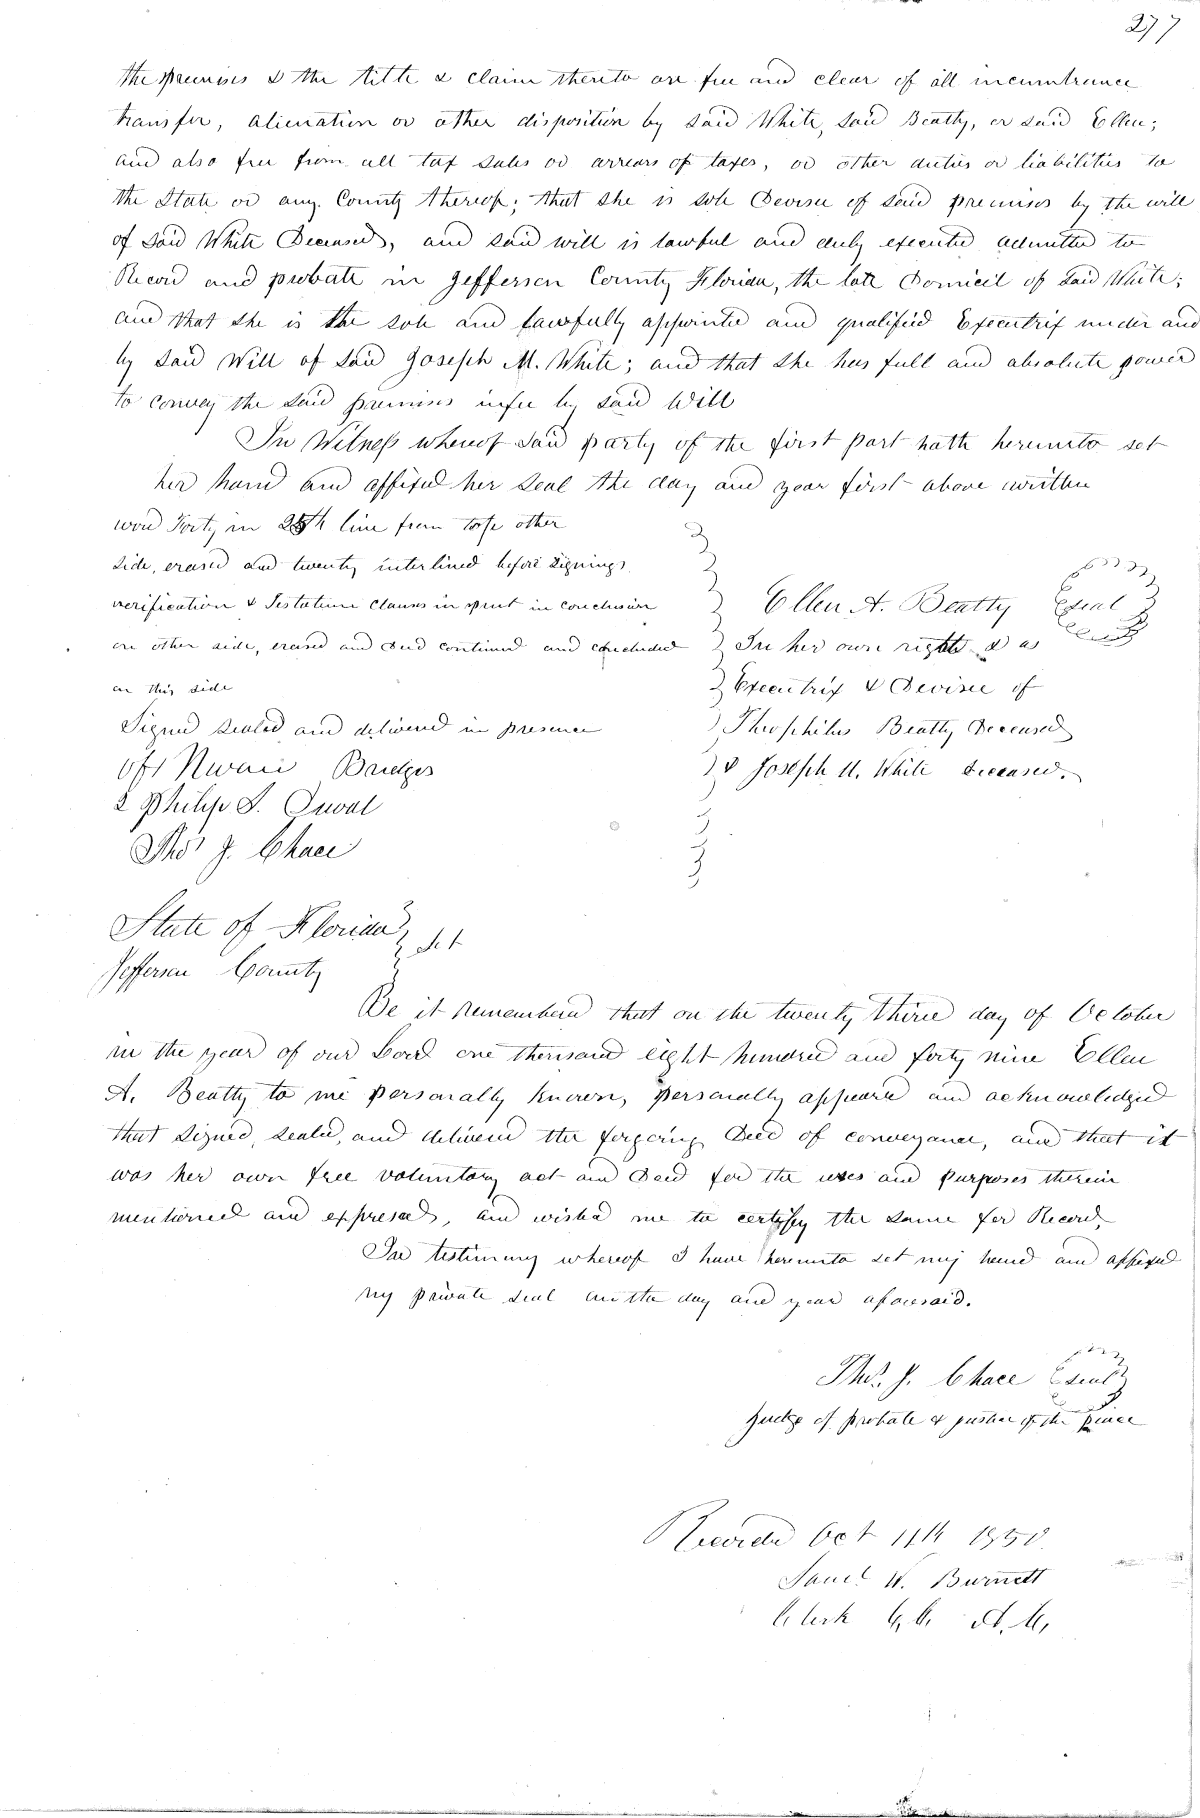 277
the premises & the title & claim thereto are free and clear of all incumbrance
transfer, alienation or other disposition by said White, said Beatty, or said Ellen;
and also free from all tax sales or arrears of taxes, or other duties or liabilities to
the State or any County thereof; that she is sole Devisee of said premises by the will
of said White Deceased, and said will is lawful and duly executed admitted to
Record and probate in Jefferson County Florida, the late Domicil of said White;
and that she is the sole and lawfully appointed and qualified Executrix under and
by said Will of said Joseph M. White; and that she has full and absolute power
to convey the said premises in fee by said Will
In Witness whereof said party of the first part hath hereunto set
her hand and affixed her seal the day and year first above written
word Forty in 28th line from top other
side, erased and twenty interlined before signing,
verification & Testatum clauses in print in conclusion
on other side, erased and Deed continued and concluded
on this side
Signed sealed and delivered in presence
of 1 Bridges
2 Philip S. Duval
Thos J. Chace
Ellen A. Beatty Seal
In her own right & as
Executrix & Devisee of
Theophilus Beatty Deceased
& Joseph M. White Deceased.
State of Florida
Jefferson County Sct
Be it remembered that on the twenty third day of October
in the year of our Lord one thousand eight hundred and forty nine Ellen
A. Beatty to me personally known, personally appeared and acknowledged
that signed, sealed, and delivered the forgoing Deed of conveyance, and that it
was her own free voluntary act and Deed for the uses and purposes therein
mentioned and expresed, and wished me to certify the same for Record,
In testimony whereof I have hereunto set my hand and affixed
my private seal on the day and year aforesaid.
Thos. J. Chace Seal
Judge of probate & justice of the peace
Recorded Oct 11th 1850
Saml W. Burnett
Clerk C, C, A, C,